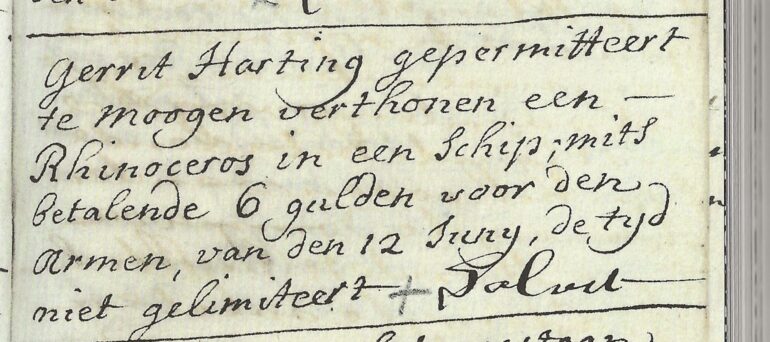 Gerrit Harting gepermitteert
te moogen verthonen een —
Rhinoceros in een Schip, mits
betalende 6 gulden voor den
armen, van den 12 Juny, de tyd
niet gelimiteert + Solvit